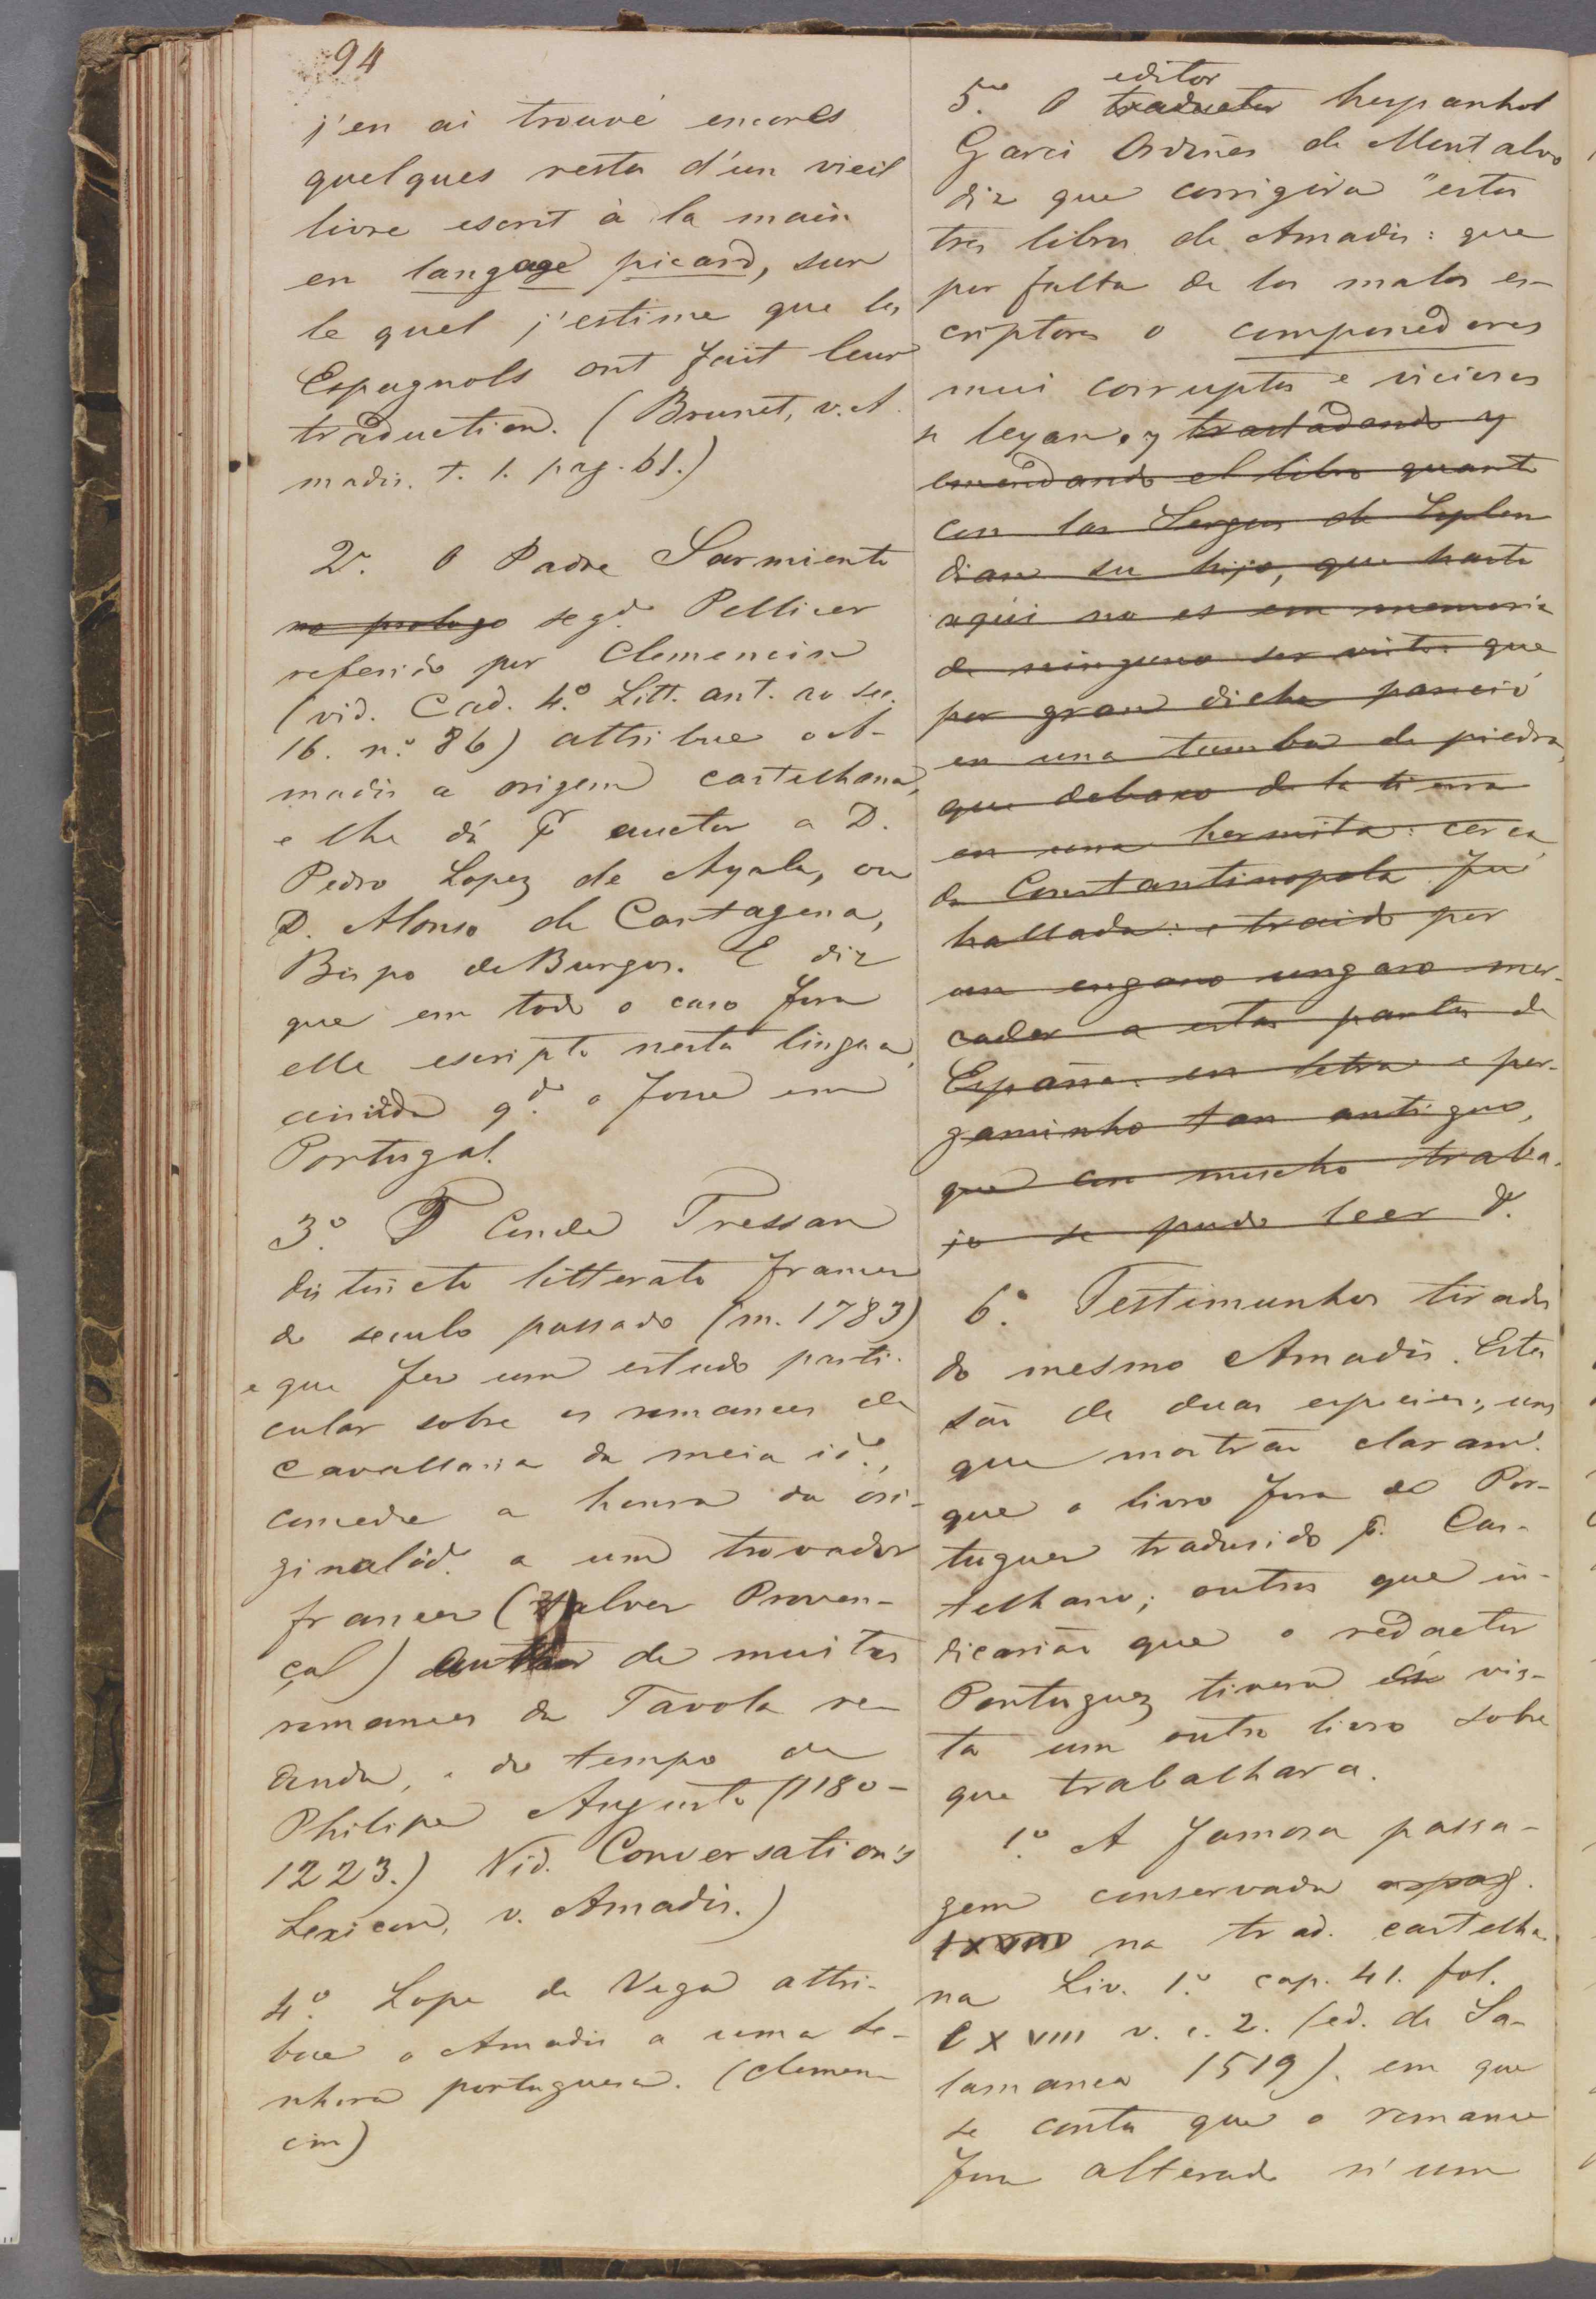 94
j'en ai trouvé encores
quelques restes d'un vieil
livre escrit à la main
en langage picard, sur
le quel j'estime que les
Espagnols ont fait leur
traduction. (Brunet, v. A
madis. t. 1. pag. 61.)
2.º O Padre Sarmiento
no prologo segd.º Pellicer
referido por Clemencin
(vid. Cad. 4.º Litt. ant. ao sec.
16. n.º 86) attribue o A-
madis a origem castelhana,
e lhe dá pr auctor a D.
Pedro Lopez de Ayala, ou
D. Alonso de Cartagena,
Bispo de Burgos. E diz
que em todo o caso fora
elle escripto nesta lingua,
ainda qd.º o fosse em
Portugal.
3.º O Conde Tressan
distincto litterato francez
do seculo passado (m. 1783)
e que fez um estudo parti-
cular sobre os romances de
Cavallaria da meia id.e,
concede a honra da ori-
ginalid.e a um trovador
francez (talvez Proven-
çal) author de muitos
romances da Tavola re-
donda, e do tempo de
Philipe Augusto (1180-
1223.) Vid. Conversation's
Lexicon, v. Amadis.)
4.º Lope de Vega attri-
bue o Amadis a uma se-
nhora portugueza. (Clemen-
cin)
editor
5.º O traductor hespanhol
Garci Ordoñes de Montalvo
diz que corrigira "estos
tres libros de Amadis: que
por falta de los malos es-
criptores o componedores
mui corruptos e viciosos
se leyan. y trasladando y
emendando el libro quarto
con las Sergas de Esplan
dian su hijo, que hasta
aqui no es em memoria
de ninguno ser visto: que
por gran dicha pareció
en una tumba de piedra,
que debaxo de la tierra
en una hermita: cerca
de Constantinopola fué
hallada: e traido por
un engano ungaro mer-
cader a estas partes de
España: en letra e per-
gaminho tan antiguo,
que con mucho traba-
jo se pudo leer &.
6.º Testimunhos tirados
do mesmo Amadis. Estes
são de duas especies; uns
que mostrão claram.e
que o livro fora do Por-
tuguez traduzido pr. Cas-
telhano; outros que in-
dicarião que o redactor
Portuguez tivera em vis-
ta um outro livro sobre
que trabalhara.
1.º A famosa passa-
gem conservada a pag.
lxviii na trad. castelha-
na Liv. 1.º cap. 41. fol.
lxviii v. c. 2. (ed. de Sa-
lamanca 1519). em que
se conta que o romance
fora alterado n'um